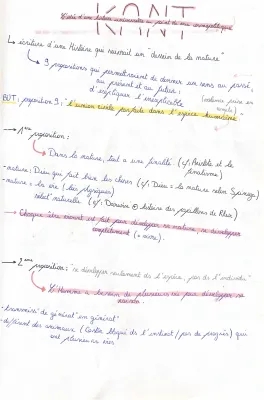 KANT
Idée d'une histoire universelle au point de vue cosmopolitique
↳ écriture d'une Histoire qui suivrait un "dessein de la nature"
↳ 9 propositions qui permettraient de donner un sens au passé,
au présent et au futur :
d'expliquer l'inexplicable
BUT : proposition 9 : "l'union civile parfaite dans l'espèce humaine"
→ 1ère proposition :
↳ Dans la nature, tout a une finalité. (cf : Aristote et le
finalisme)
- nature : Dieu qui fait bien les choses (cf : Dieu = la nature selon Spinoza)
- nature = la vie (lois physiques)
sélect° naturelle (cf : Darwin histoire des papillons de
→ Chaque être vivant est fait pour développer sa nature, se développer
complètement
→ 2ème proposition : "se développer seulement ds l'espèce, pas ds l'individu"
↳ L'Homme a besoin de plusieurs vies pour développer sa
- transmis de générat° en générat°
- différent des animaux (instinct / pas de progrès) qui
ont plusieurs vies